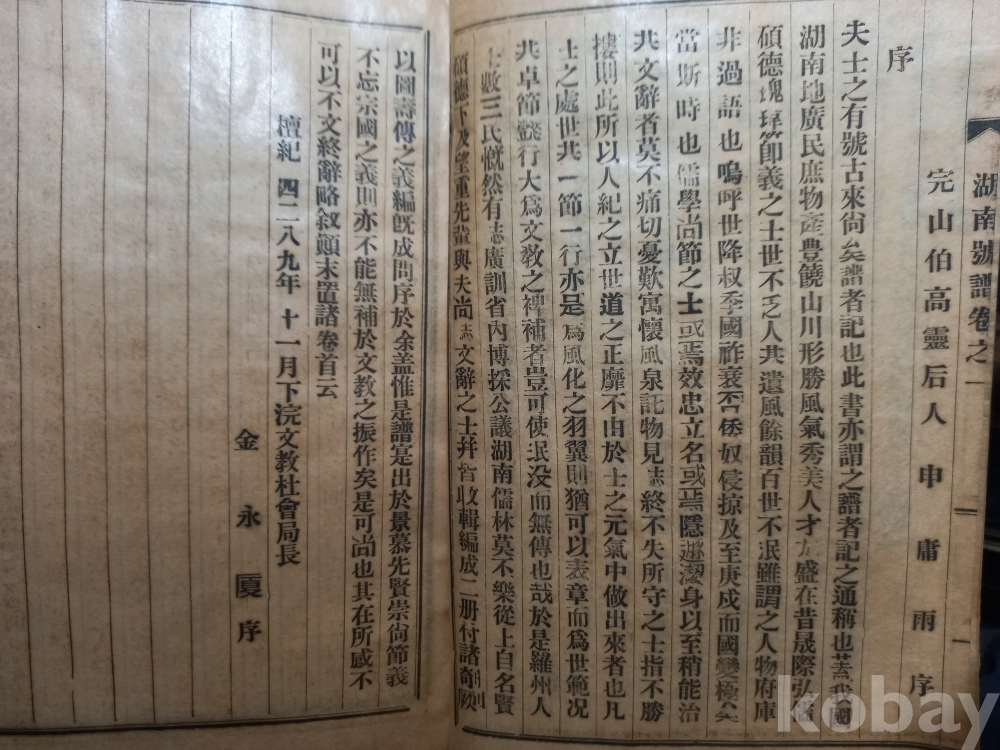 湖南號譜卷之一
完山伯高靈后人申庸雨序
序
夫士之有號古來尙矣譜者記也此書亦謂之譜者記之通稱也蓋我國
湖南地廣民庶物產豊饒山川形勝風氣秀美人才尤盛在昔晟際弘儒
碩德瑰瑋節義之士世不乏人共遺風餘韻百世不泯雖謂之人物府庫
非過語也嗚呼世降叔季國祚衰否倭奴侵掠及至庚戍而國變極矣
當斯時也儒學尚節之士或焉效忠立名或焉隱遯潔身以至稍能治
共文辭者莫不痛切憂歎寓懷風泉託物見志終不失所守之士指不勝
樓則此所以人紀之立世道之正靡不由於士之元氣中做出來者也凡
士之處世共一節一行亦是爲風化之羽翼則猶可以表章而爲世範况
共卓節懿行大爲文敎之裨補者豈可使泯没而無傳也哉於是羅州人
士數三氏慨然有志廣訓省內博採公議湖南儒林莫不樂從上自名賢
碩德下及望重先輩與夫尚志文辭之士幷皆收輯編成二册付諸剞劂
以圖壽傳之義編旣成問序於余盖惟是譜寔出於景慕先賢崇尙節義
不忘宗國之義則亦不能無補於文敎之振作矣是可尙也其在所感不
可以不文終辭略敘顚末置諸卷首云
檀紀 四二八九年 十一月下浣文敎社會局長
金永厦序
一
kobay